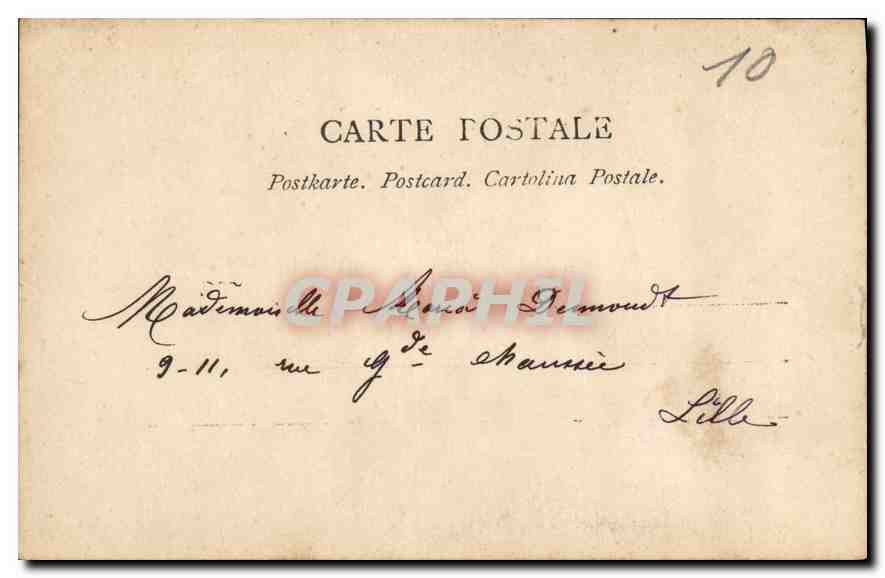 10
CARTE POSTALE
Postkarte. Postcard. Cartolina Postale.
CPAPHIL
Mademoiselle Maria Demoudt
9-11, rue Gde chaussée
Lille